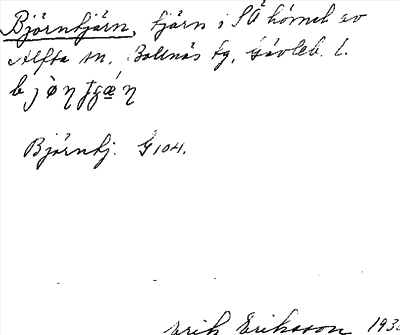 Björntjärn, tjärn i SÄ hörnet av
Alfta sn, Bollnäs tg, Gävleb. l.
Björntj. G104.
Erik Eriksson 193